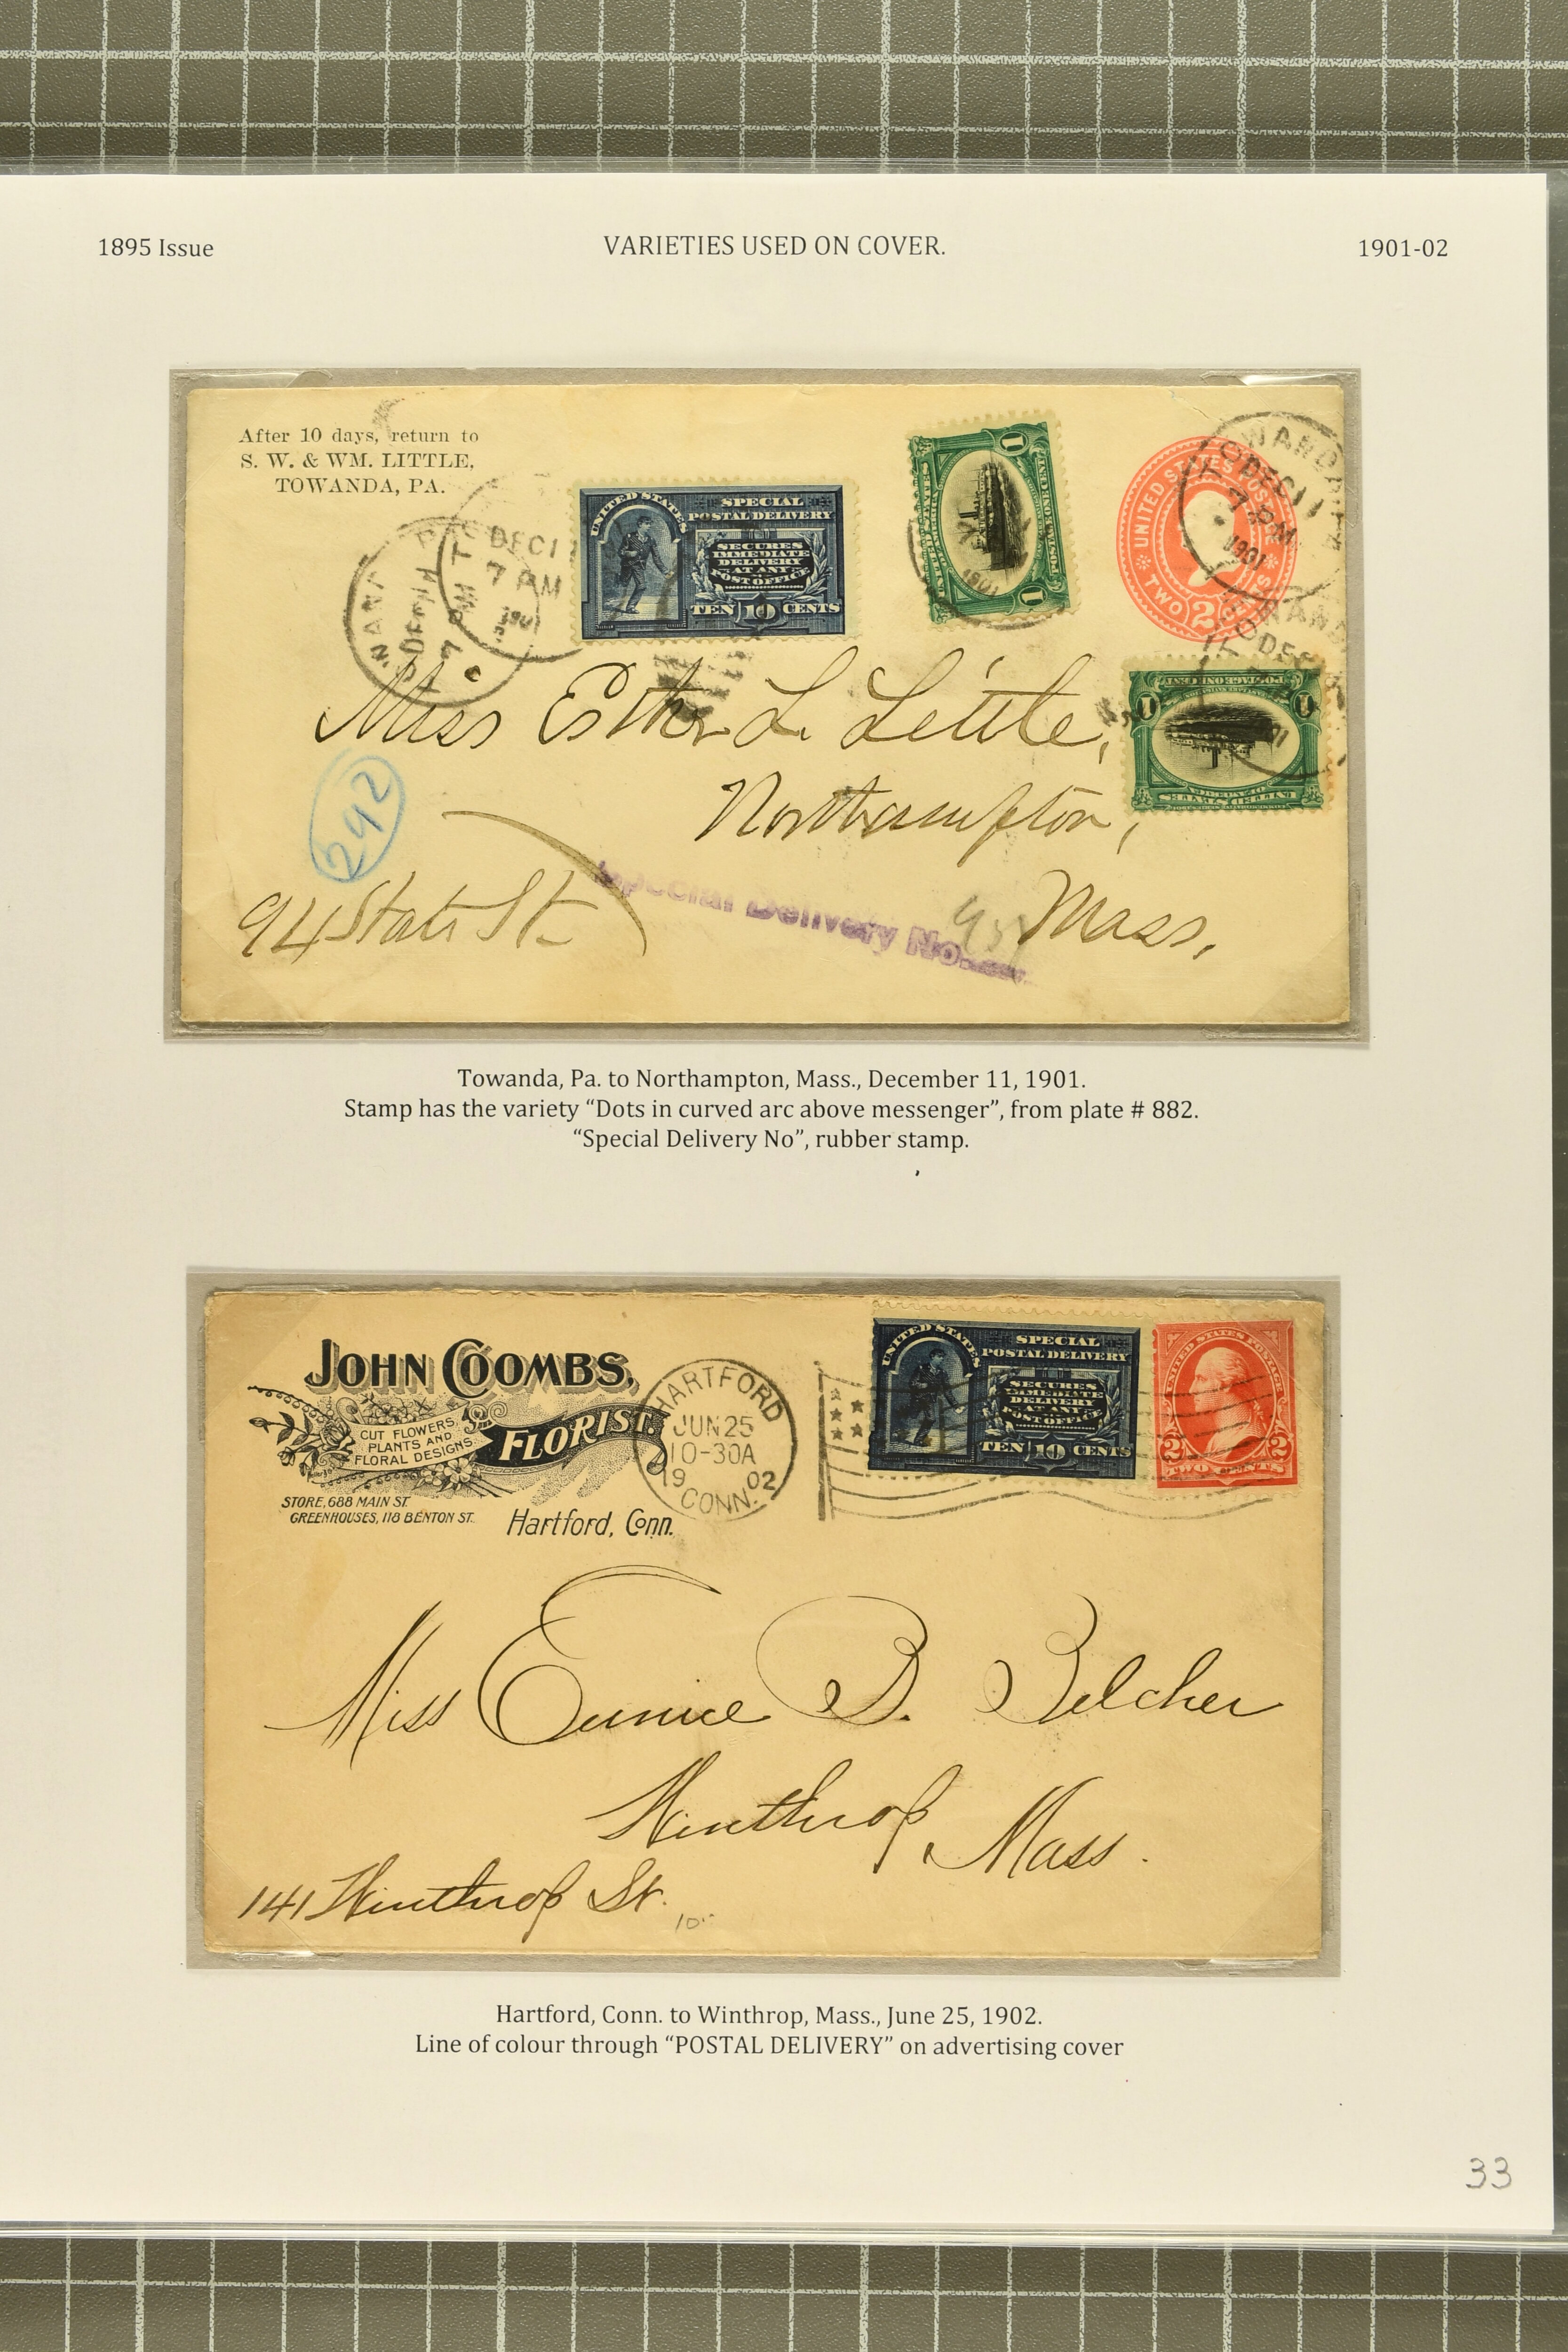 1895 Issue
VARIETIES USED ON COVER.
1901-02
After 10 days, return to
S. W. & WM. LITTLE,
TOWANDA, PA.
DEC 1
7 PM
7 AM
UNITED STATES
SPECIAL
POSTAL DELIVERY
SECURES
IMMEDIATE
DELIVERY
AT ANY
POST OFFICE
TEN 10 CENTS
1
1
1901
UNITED STATES POSTAGE
TWO 2
DEC 11
7 PM
1901
1
1
Miss Esther L. Little,
Northampton,
Mass,
292
94 State St.
Special Delivery No.
Towanda, Pa. to Northampton, Mass., December 11, 1901.
Stamp has the variety “Dots in curved arc above messenger”, from plate # 882.
“Special Delivery No”, rubber stamp.
JOHN COOMBS,
FLORIST.
CUT FLOWERS,
PLANTS AND
FLORAL DESIGNS.
STORE, 688 MAIN ST.
GREENHOUSES, 118 BENTON ST.
Hartford, Conn.
HARTFORD
JUN 25
10-30A
19 02
CONN.
UNITED STATES
SPECIAL
POSTAL DELIVERY
SECURES
IMMEDIATE
DELIVERY
AT ANY
POST OFFICE
TEN 10 CENTS
UNITED STATES POSTAGE
2 2
TWO CENTS
Miss Eunice B. Belcher
Winthrop, Mass.
141 Winthrop St.
10
Hartford, Conn. to Winthrop, Mass., June 25, 1902.
Line of colour through “POSTAL DELIVERY” on advertising cover
33